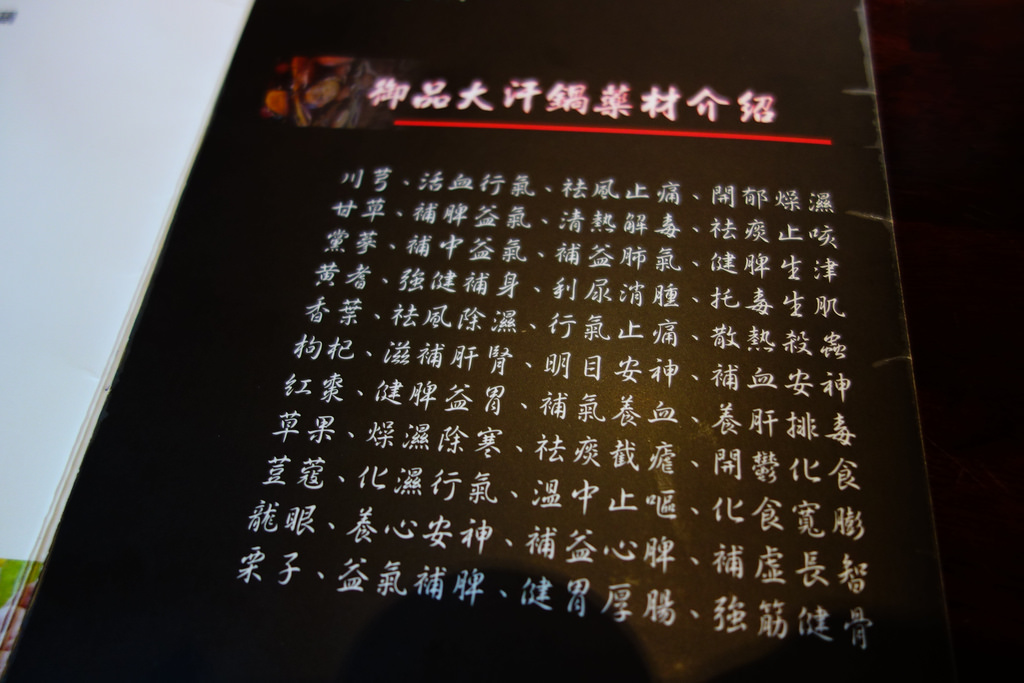 御品大汗鍋藥材介紹
川芎、活血行氣、祛風止痛、開郁燥濕
甘草、補脾益氣、清熱解毒、祛痰止咳
黨蔘、補中益氣、補益肺氣、健脾生津
黃耆、強健補身、利尿消腫、托毒生肌
香葉、祛風除濕、行氣止痛、散熱殺蟲
枸杞、滋補肝腎、明目安神、補血安神
紅棗、健脾益胃、補氣養血、養肝排毒
草果、燥濕除寒、祛痰截瘧、開鬱化食
荳蔻、化濕行氣、溫中止嘔、化食寬膨
龍眼、養心安神、補益心脾、補虛長智
栗子、益氣補脾、健胃厚腸、強筋健骨